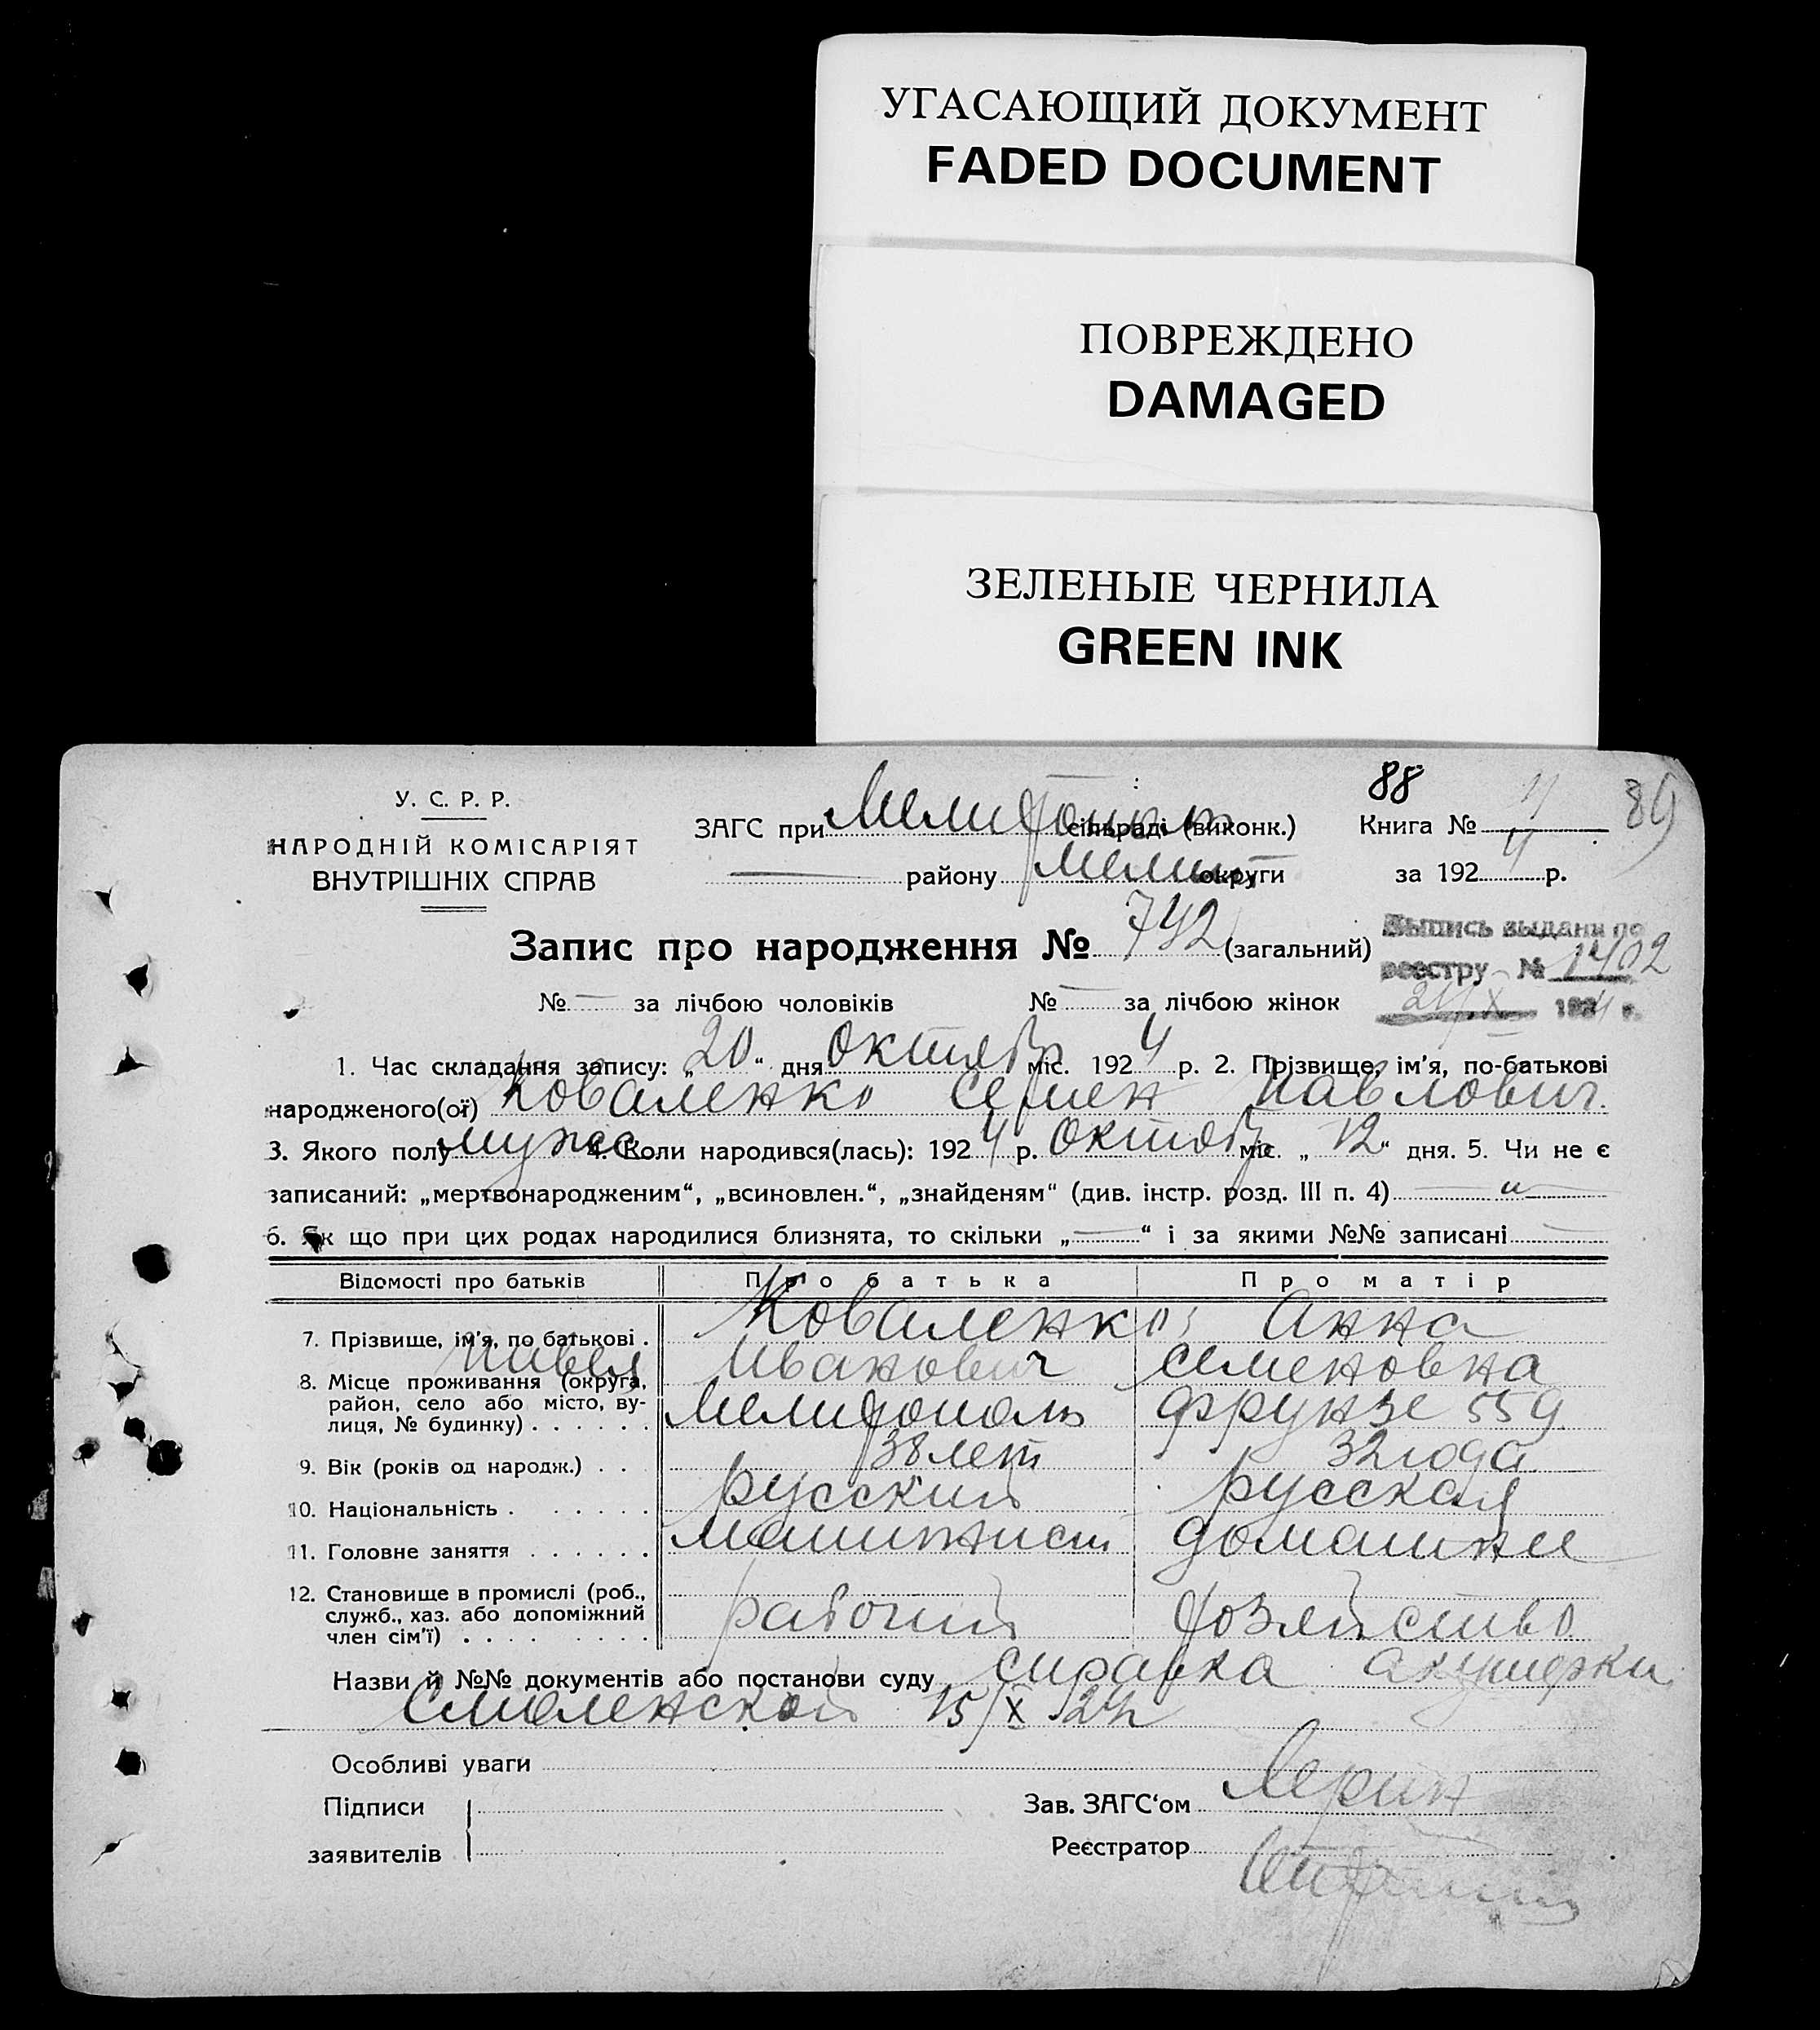 УГАСАЮЩИЙ ДОКУМЕНТ
FADED DOCUMENT
ПОВРЕЖДЕНО
DAMAGED
ЗЕЛЕНЫЕ ЧЕРНИЛА
GREEN INK
88
89
У. С. Р. Р.
НАРОДНІЙ КОМІСАРІЯТ
ВНУТРІШНІХ СПРАВ
ЗАГС при Мелитопольск сільраді (виконк.) Книга №
району Мелит округи за 1924 р.
Запис про народження № 742 (загальний)
Выпись выдана по
реестру № 1402
№ — за лічбою чоловіків № — за лічбою жінок
1. Час складання запису: „20“ дня октябр міс. 1924 р. 2. Прізвище, ім'я, по-батькові
народженого(ої) Коваленко Семен Павлович
3. Якого полу мужс 4. Коли народився(лась): 1924 р. октябр міс. „12“ дня. 5. Чи не є
записаний: „мертвонародженим“, „всиновлен.“, „знайденям“ (див. інстр. розд. III п. 4) — „ —
6. Як що при цих родах народилися близнята, то скільки „—“ і за якими №№ записані —
Відомості про батьків Про батька Про матір
7. Прізвище, ім'я, по батькові . Коваленко Анна
Павел Иванович Семеновна
8. Місце проживання (округа, район, село або місто, вулиця, № будинку) . . . . . . Мелитополь Фрунзе 559
9. Вік (років од народж.) . . 38 лет 32 года
10. Національність . . . . . . русский русская
11. Головне заняття . . . . . . машинист домашнее
12. Становище в промислі (роб., служб., хаз. або допоміжний член сім'ї) . . . . рабочий хозяйство
Назви й №№ документів або постанови суду справка акушерки
Смоленской 15/X 24г
Особливі уваги
Підписи
заявителів
Зав. ЗАГС'ом
Реєстратор